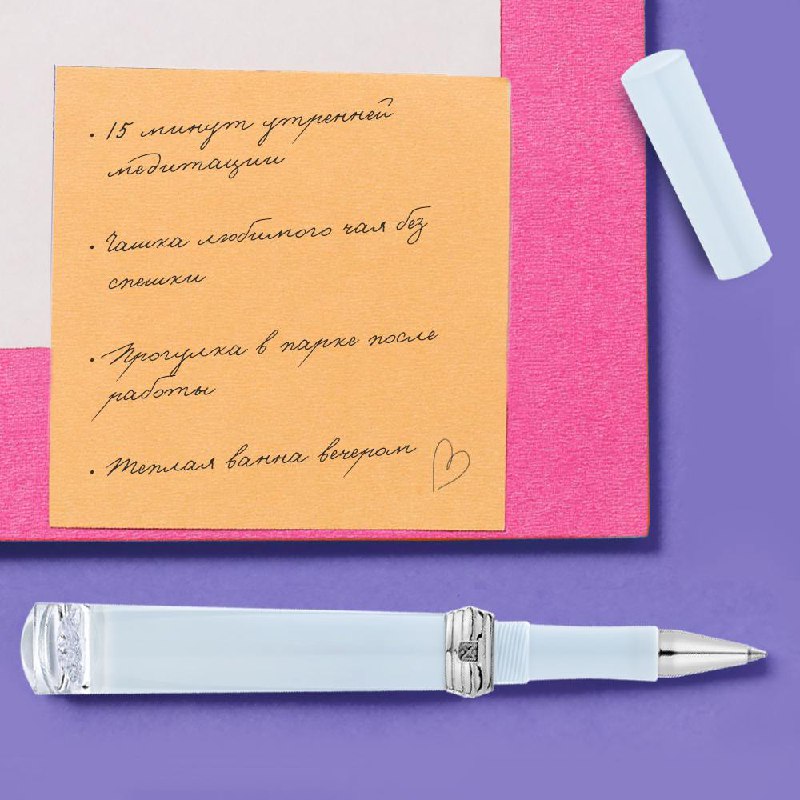 • 15 минут утренней
медитации
• Чашка любимого чая без
спешки
• Прогулка в парке после
работы
• Теплая ванна вечером